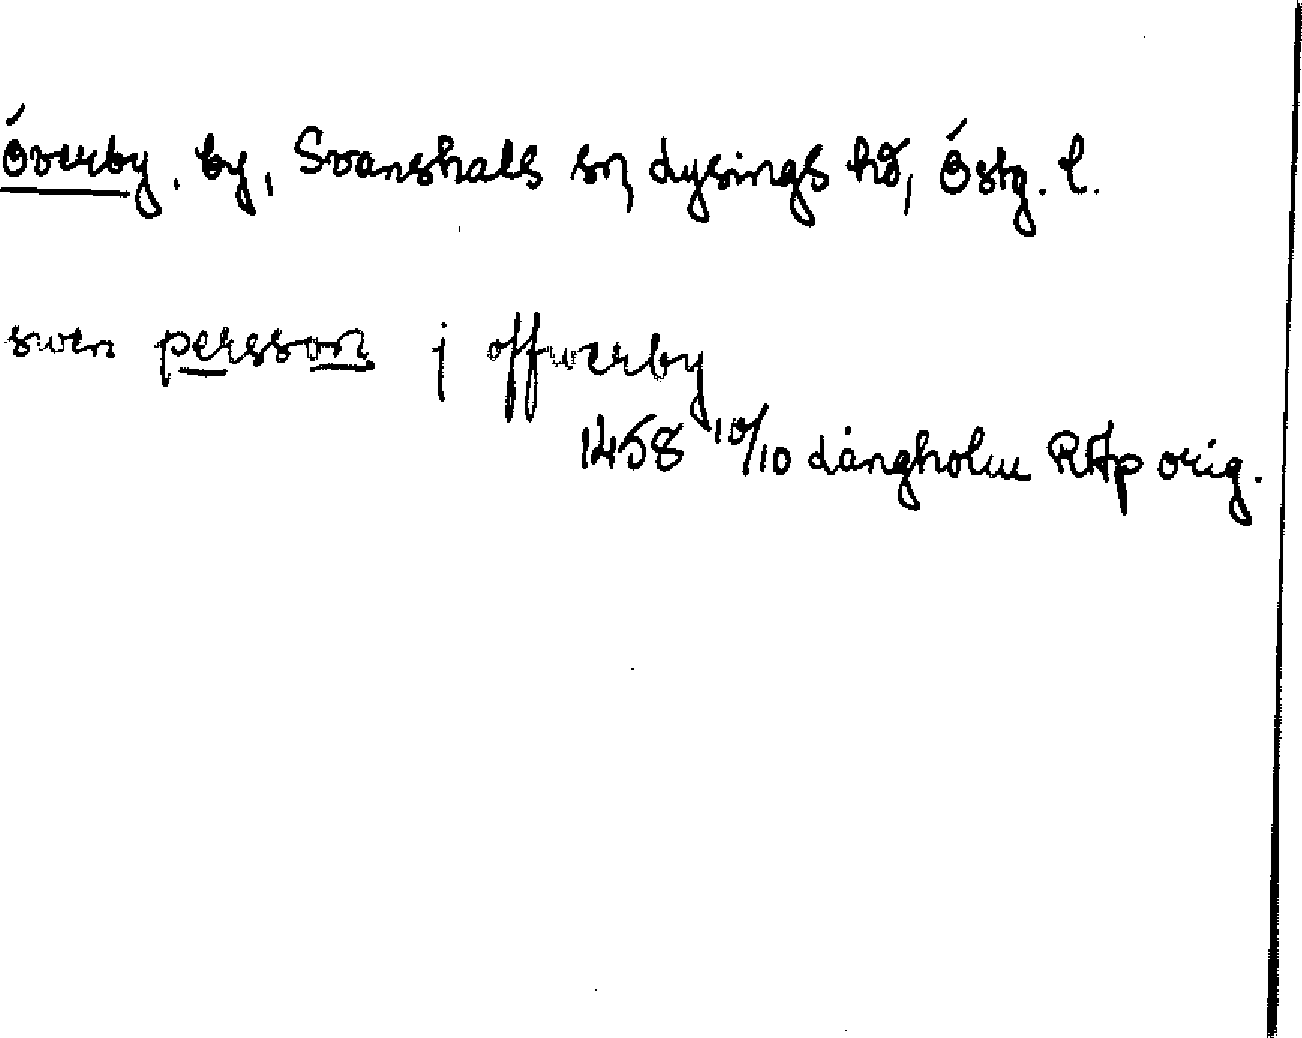 Överby. by, Svanshals sn, Lysings hd, Östg. l.
swen persson j offwerby
1458 10/10 Långholm RAp orig.